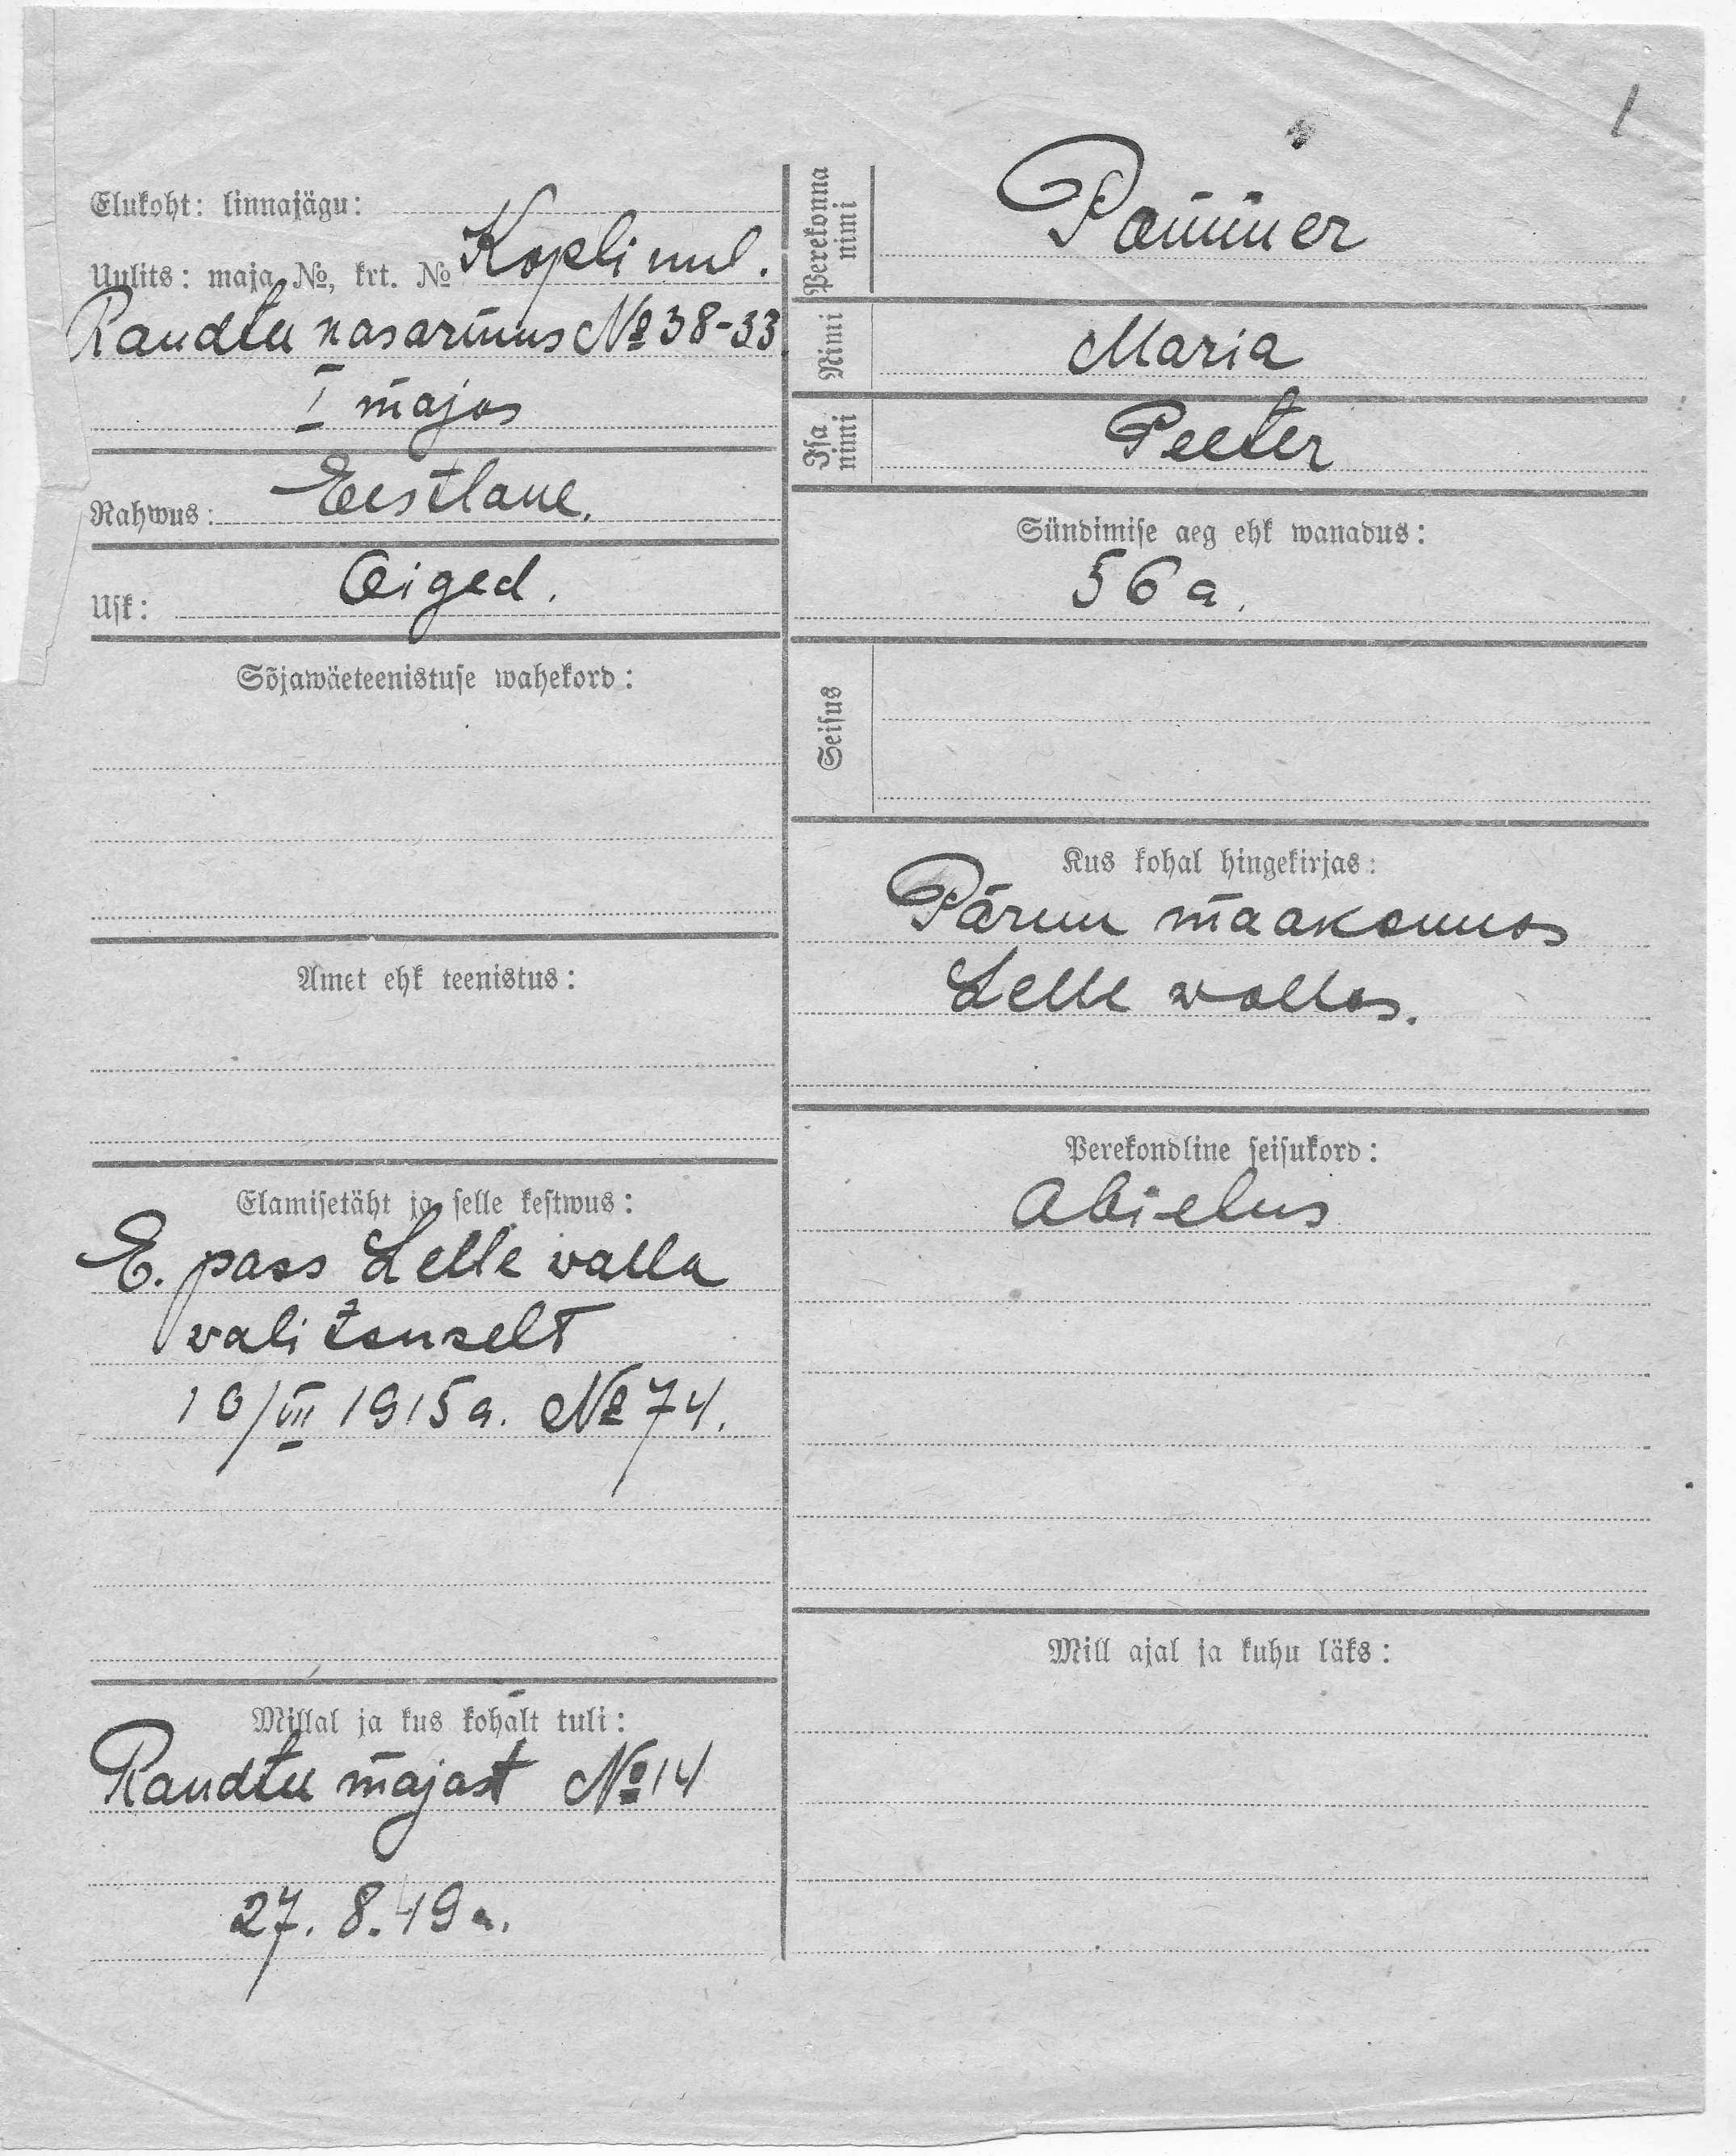 1
Elukoht: linnajägu:
Uulits: maja №, krt. № Kopli uul.
Raudtee kasarmus № 38-33
I majas
Rahwus: Eestlane.
Usk: Õiged.
Sõjawäeteenistuse wahekord:
Amet ehk teenistus:
Elamisetäht ja selle kestwus:
E. pass Lelle walla
walitsuselt
10/VII 1915 a. № 74.
Millal ja kus kohalt tuli:
Raudtee majast № 14
27. 8. 19 a.
Perekonna nimi
Pommer
Nimi
Maria
Isa nimi
Peeter
Sündimise aeg ehk wanadus:
56 a.
Seisus
Kus kohal hingekirjas:
Pärnu maakonnas
Lelle wallas.
Perekondline seisukord:
Abielus
Mill ajal ja kuhu läks: